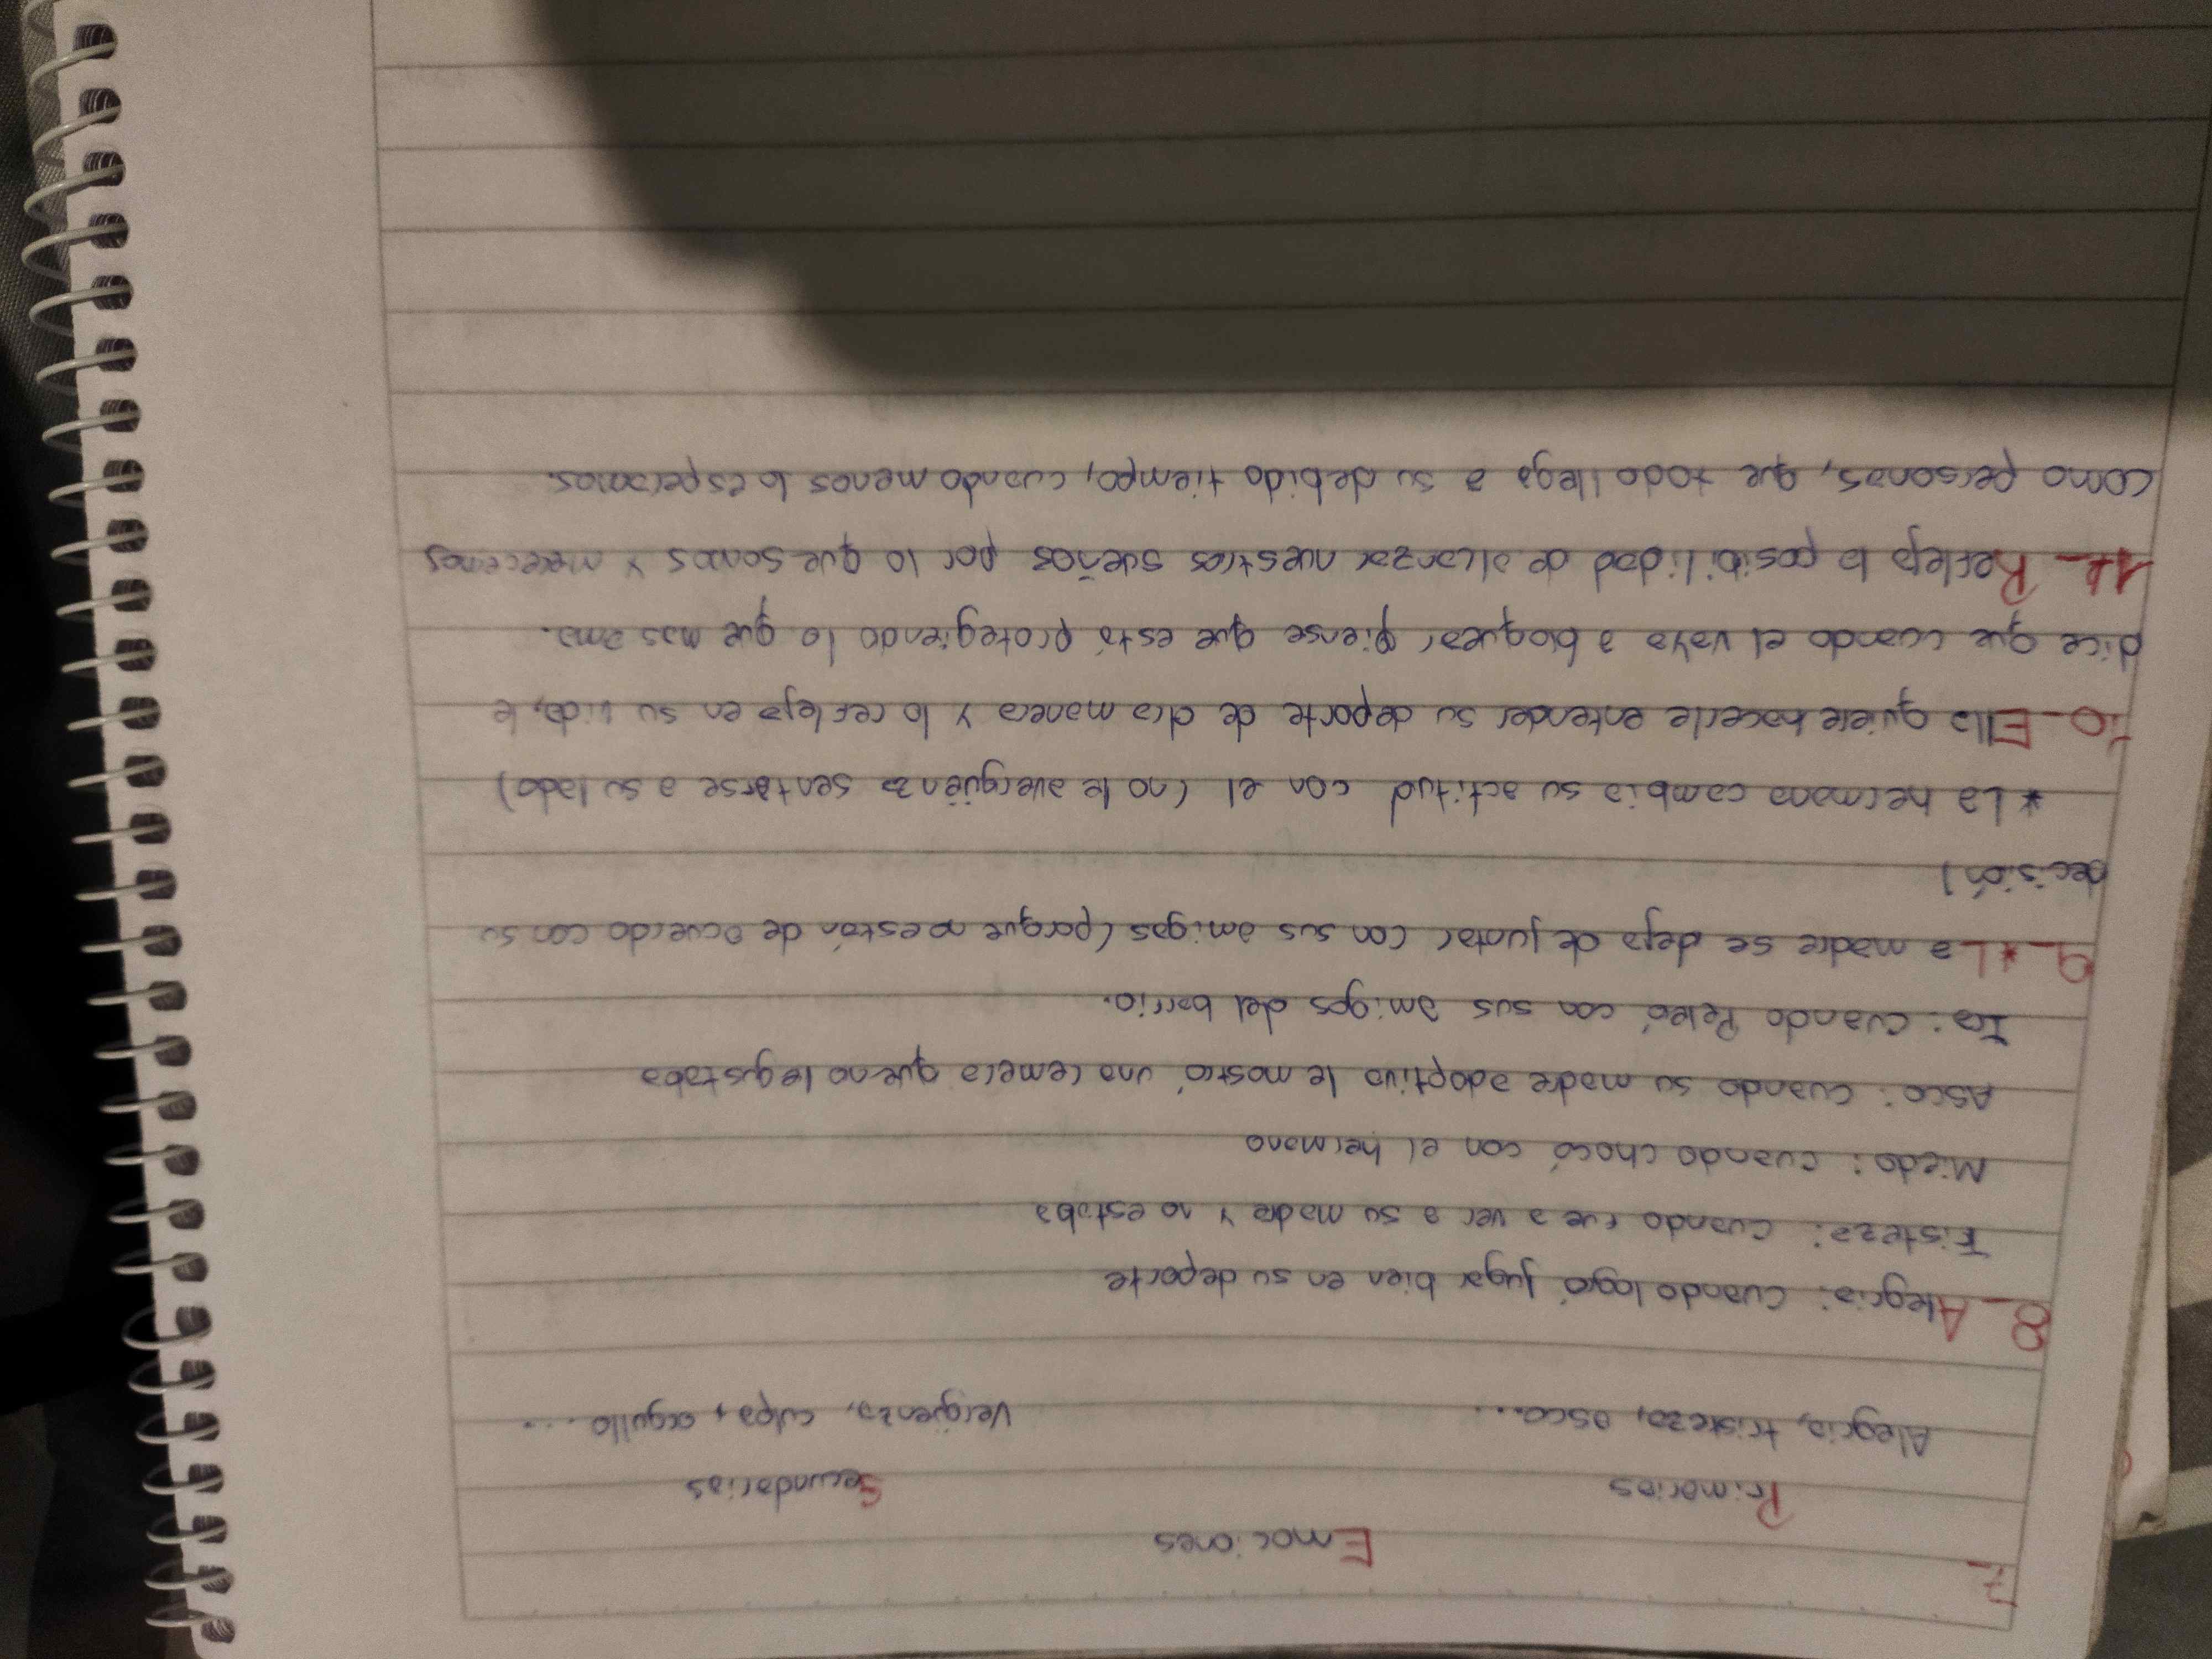 7_
Emociones
Primarias Secundarias
Alegria, tristeza, asco... Vergüenza, culpa, orgullo ...
8_ Alegria: cuando logró jugar bien en su deporte
Tristeza: cuando fue a ver a su madre y no estaba
Miedo: cuando chocó con el hermano
Asco: cuando su madre adoptiva le mostró una remera que no le gustaba
Ira: cuando Peleó con sus amigos del barrio.
9_ *La madre se deja de juntar con sus amigas (porque no están de acuerdo con su
decisión)
*La hermana cambia su actitud con el (no le avergüenza sentarse a su lado)
10_ Ella quiere hacerle entender su deporte de otra manera y lo refleja en su vida, le
dice que cuando el vaya a bloquear piense que está protegiendo lo que mas ama.
11_ Refleja la posibilidad de alcanzar nuestros sueños por lo que somos y merecemos
como personas, que todo llega a su debido tiempo, cuando menos lo esperamos.